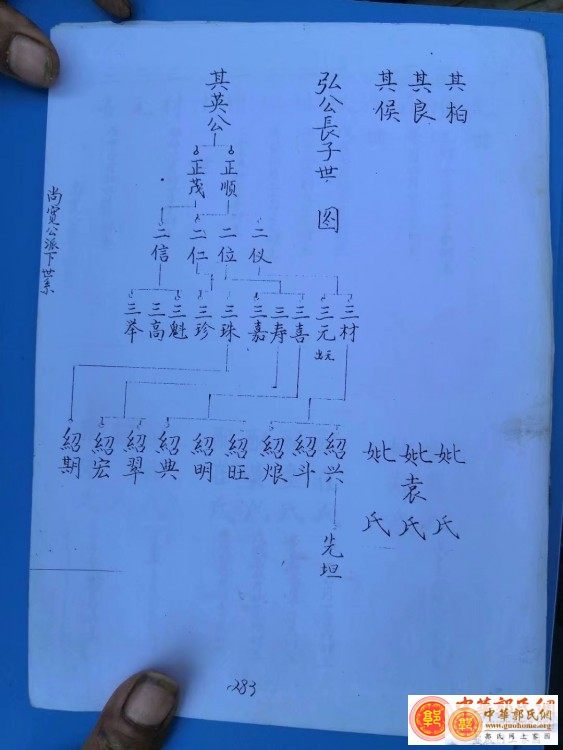 其柏
其良
其侯
妣氏
妣袁氏
妣氏
弘公長子世图
其英公
正順
正茂
二仪
二位
二仁
二信
三材
三元
出元
三喜
三寿
三嘉
三珠
三珍
三魁
三高
三举
紹兴
紹斗
紹烺
紹旺
紹明
紹典
紹翠
紹宏
紹期
先坦
尚寬公派下世系
283
中華郭氏網
www.guohome.org
郭氏網上家園